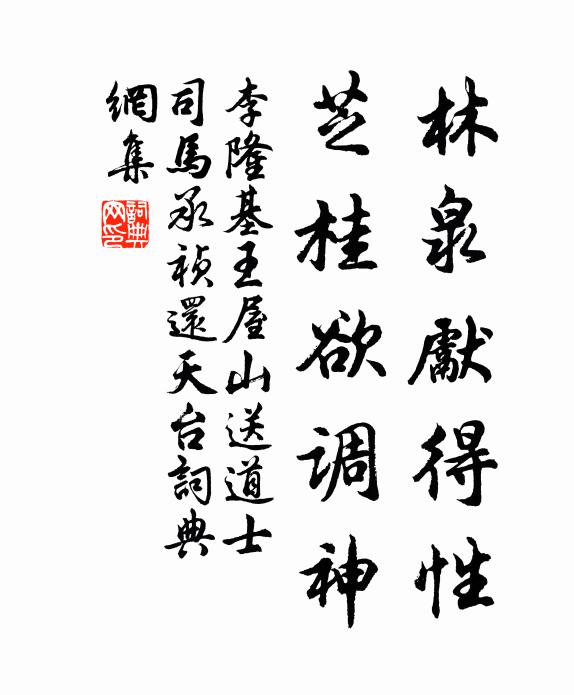 林泉獻得性
芝桂欲调神
李隆基王屋山送道士
司馬承禎還天台詞典
網集
詞典網印